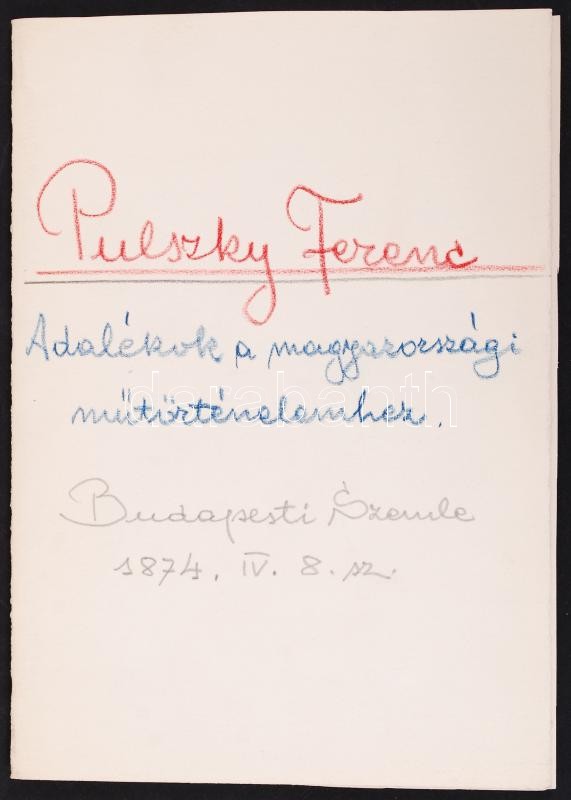 Pulszky Ferenc
Adalékok a magyarországi
műtörténelemhez.
darabanth
Budapesti Szemle
1874. IV. 8. sz.